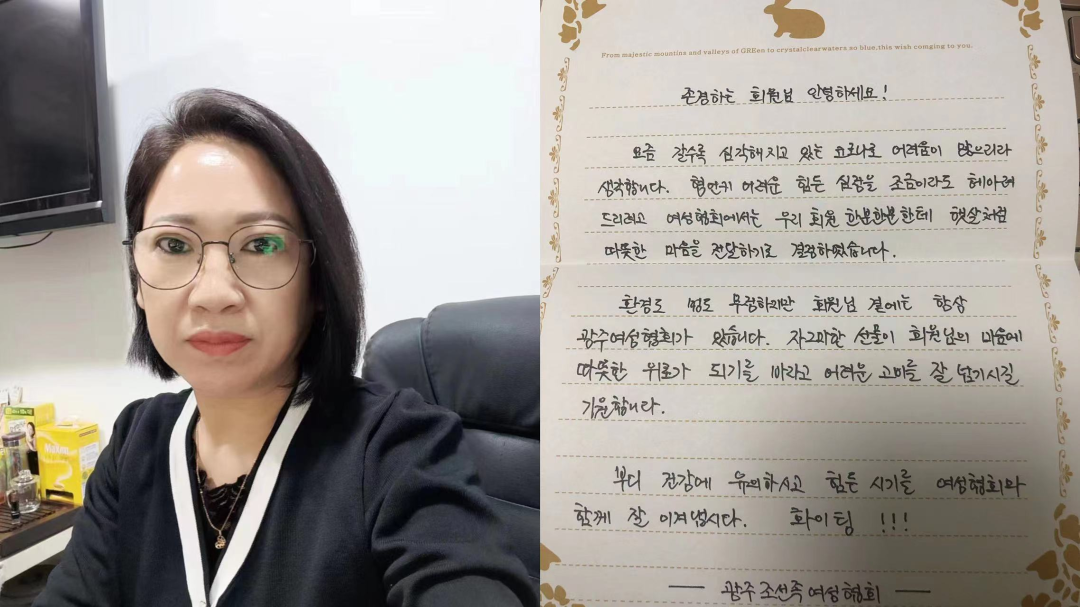 From majestic mountins and valleys of GREen to crystalclearwaters so blue.this wish comging to you.
존경하는 회원님 안녕하세요!
요즘 갈수록 심각해지고 있는 코로나로 어려움이 많으리라
생각합니다. 형언키 어려운 힘든 심람을 조금이라도 헤아려
드리려고 여성협회에서는 우리 회원 한분한분한테 햇살처럼
따뜻한 마음을 전달하기로 결정하였습니다.
환경도 병도 무정하지만 회원님 곁에는 항상
광주여성협회가 있습니다. 자그마한 선물이 회원님의 마음에
따뜻한 위로가 되기를 바라고 어려운 고비를 잘 넘기시길
기원합니다.
부디 건강에 유의하시고 힘든 시기를 여성협회와
함께 잘 이겨냅시다. 화이팅 !!!
— 광주조선족여성협회 —